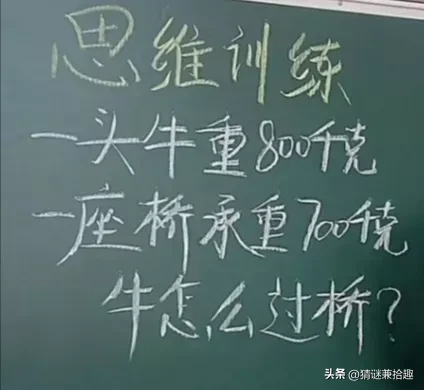 思维训练
一头牛重800千克
一座桥承重700千克
牛怎么过桥?
头条 @猜谜兼拾趣